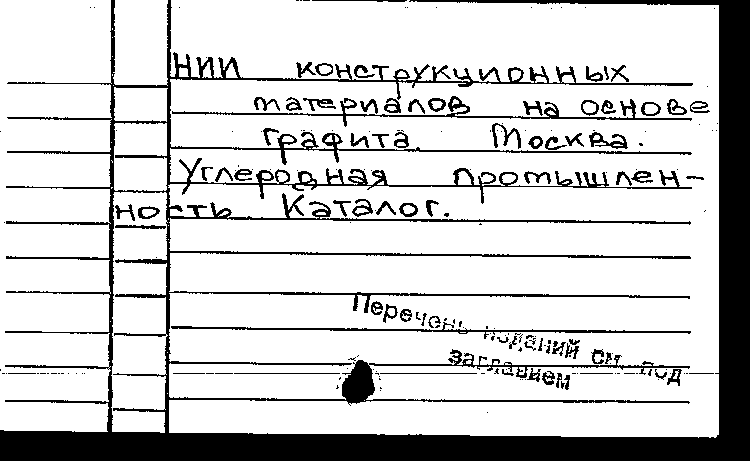 НИИ конструкционных
материалов на основе
графита. Москва.
Углеродная промышлен-
ность. Каталог.
Перечень изданий см. под
заглавием